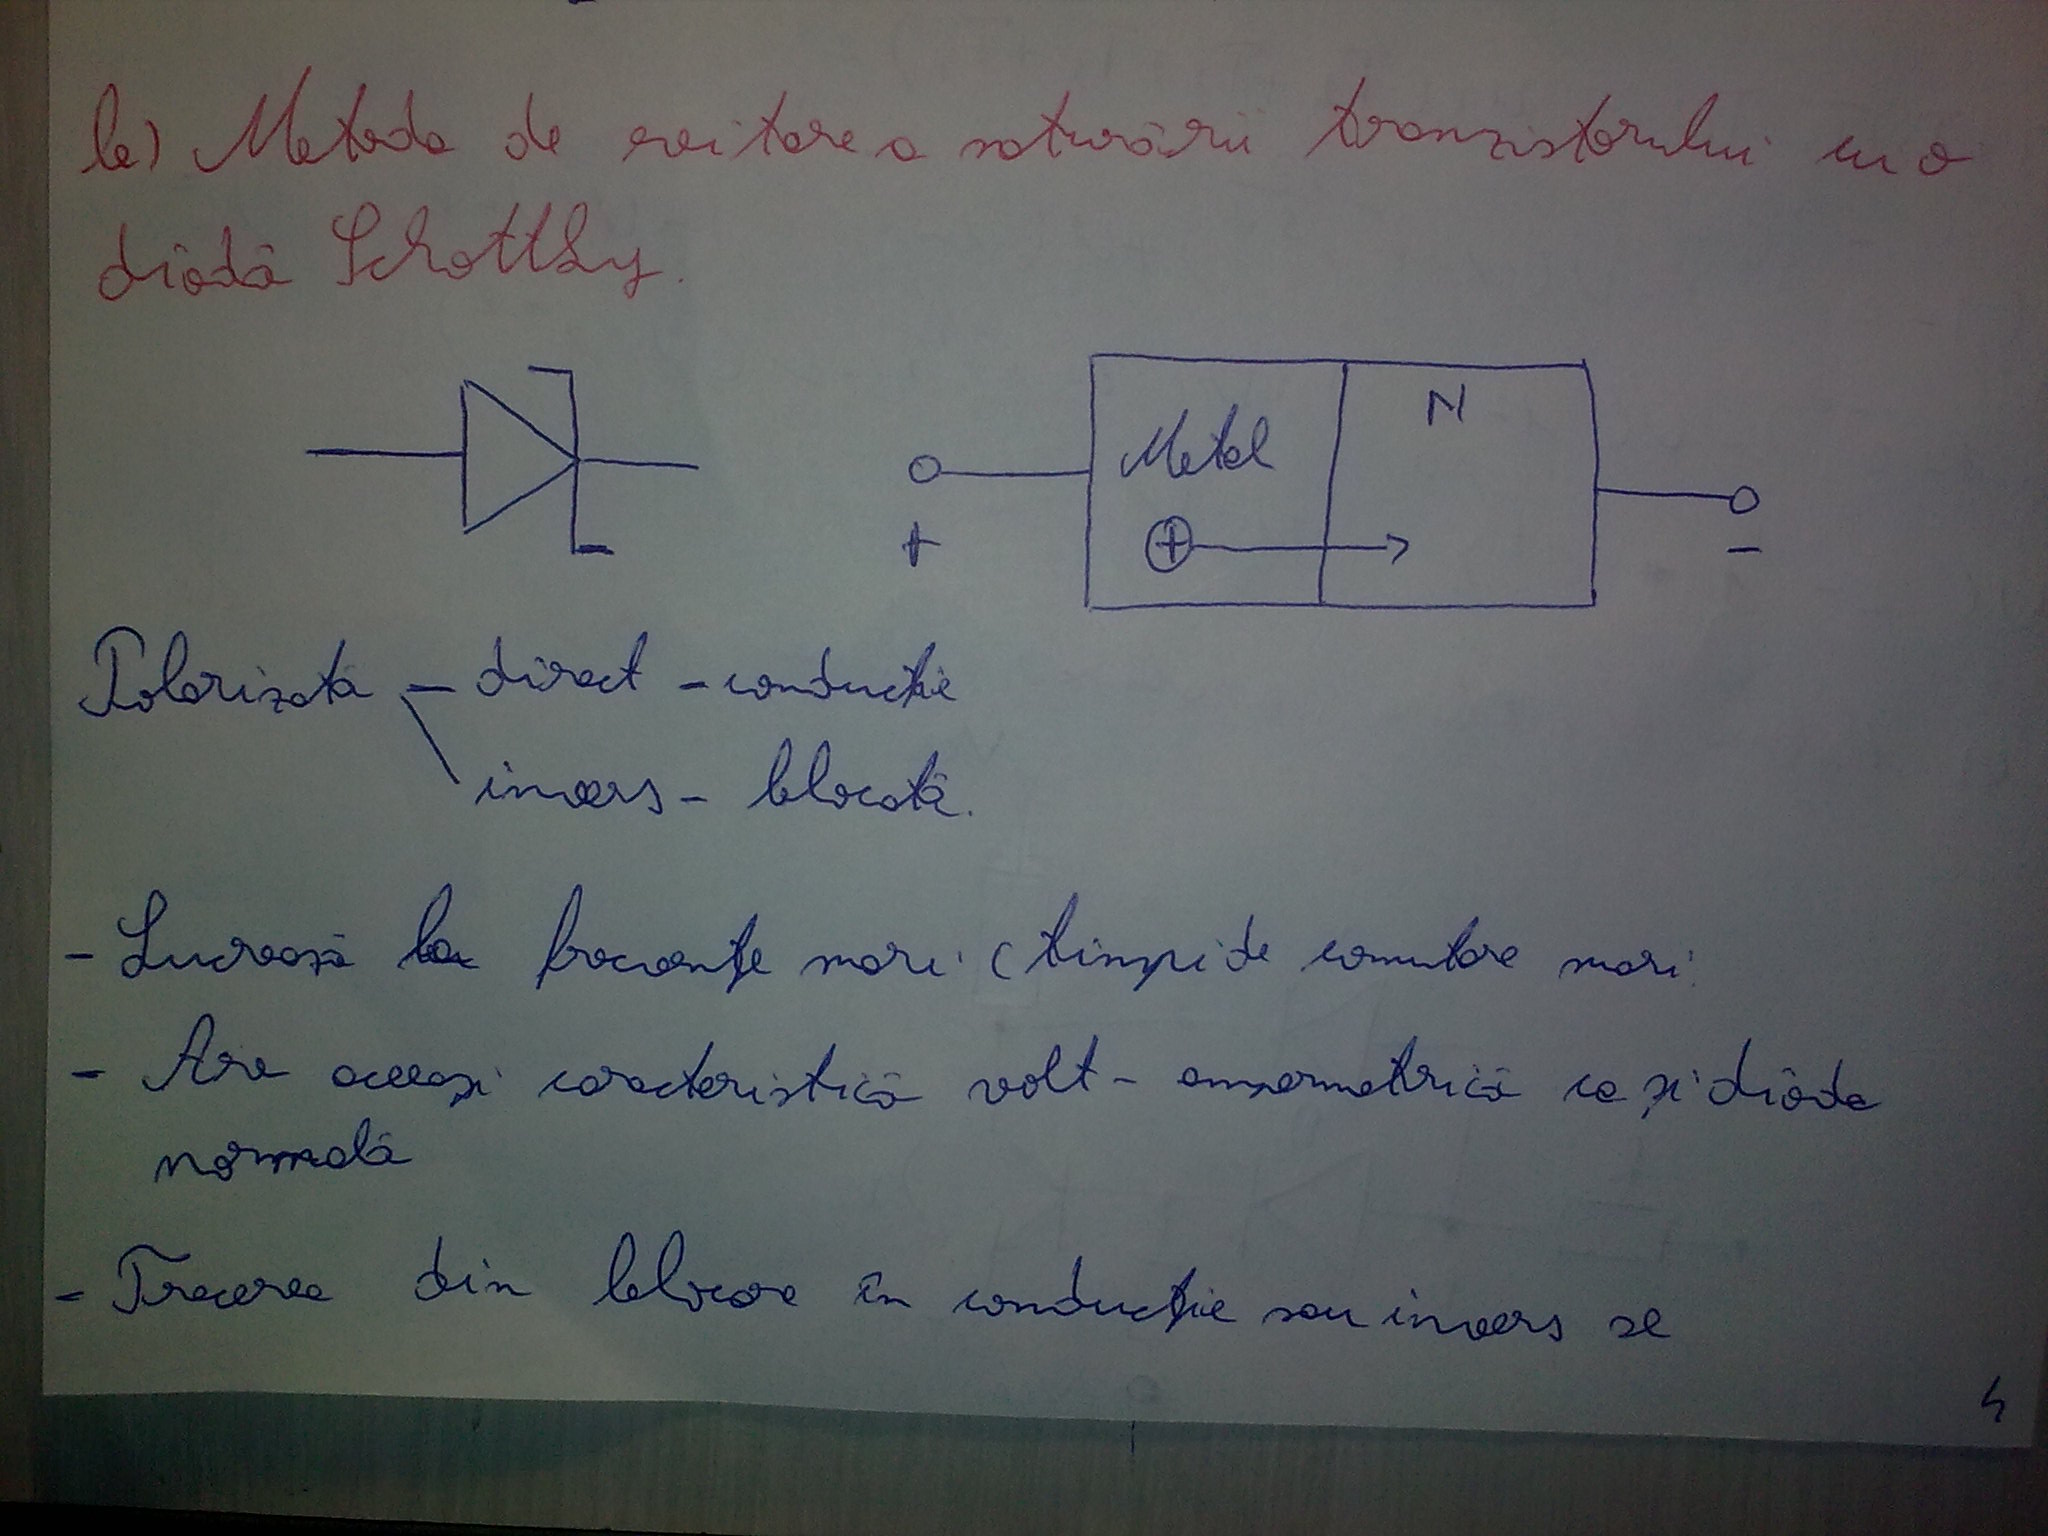 b) Metoda de evitare a saturării tranzistorului cu o
diodă Schottky.
Metal
N
+
+
-
Polarizată - direct - conducție
invers - blocată.
- Lucrează la frecvențe mari (timpi de comutare mari
- Are aceeași caracteristică volt-ampermetrică ca și dioda
normală
- Trecerea din blocare în conducție sau invers se
4